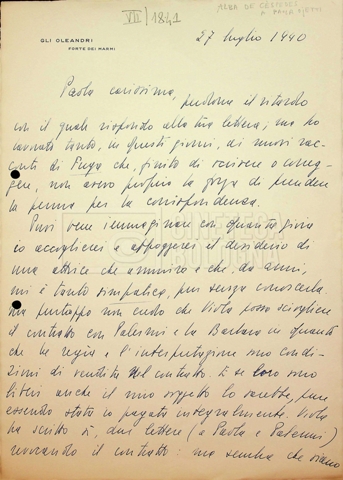 VII | 1841
ALBA DE CESPEDES
A PAOLA OJETTI
GLI OLEANDRI
FORTE DEI MARMI
27 luglio 1940
Paola carissima, perdona il ritardo
con il quale rispondo alla tua lettera; ma ho
lavorato tanto, in questi giorni, ai nuovi rac-
conti di Fuga che, finito di scrivere o correg-
gere, non avevo proprio la forza di prendere
la penna per la corrispondenza.
Puoi bene immaginare con quanta gioia
io accoglierei e appoggerei il desiderio di
una attrice che ammiro e che, da anni,
mi è tanto simpatica, pur senza conoscerla.
Ma purtroppo non credo che Viola possa sciogliere
il contratto con Palermi e la Barbara in quanto
che la regia e l'interpretazione sono condi-
zioni di vendita nel contratto. E se loro sono
liberi anche il mio soggetto lo sarebbe, pure
essendo stato io pagata integralmente. Viola
ha scritto sì, due lettere (a Paola e Palermi)
revocando il contratto: ma sembra che siano